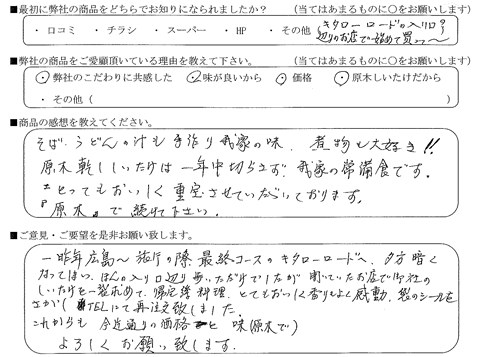 ■最初に弊社の商品をどちらでお知りになられましたか？　（当てはまるものに○をお願いします）
・口コミ　・チラシ　・スーパー　・HP　・その他（キタローロードの入り口
辺りのお店で始めて買っ〜
■弊社の商品をご愛顧頂いている理由を教えて下さい。　（当てはまるものに○をお願いします）
・弊社のこだわりに共感した　・味が良いから　・価格　・原木しいたけだから
・その他（　　　）
■商品の感想を教えてください。
そば、うどんの汁も手作り我家の味、煮物も大好き!!
原木乾ししいたけは一年中切らさず、我家の常備食です。
とってもおいしく重宝させていただいております。
『原木』で続けて下さい。
■ご意見・ご要望を是非お願い致します。
一昨年広島〜旅行の際最終コースのキタローロードへ、夕方暗く
なってしまい、ほんの入り口辺り 
しいたけを一袋求めて、帰宅後料理、とてもおいしく香りもよく感動、袋のシールを
さがし TELにて再注文致しました。
これからも今迄通りの価格と味(原木で)
よろしくお願い致します。